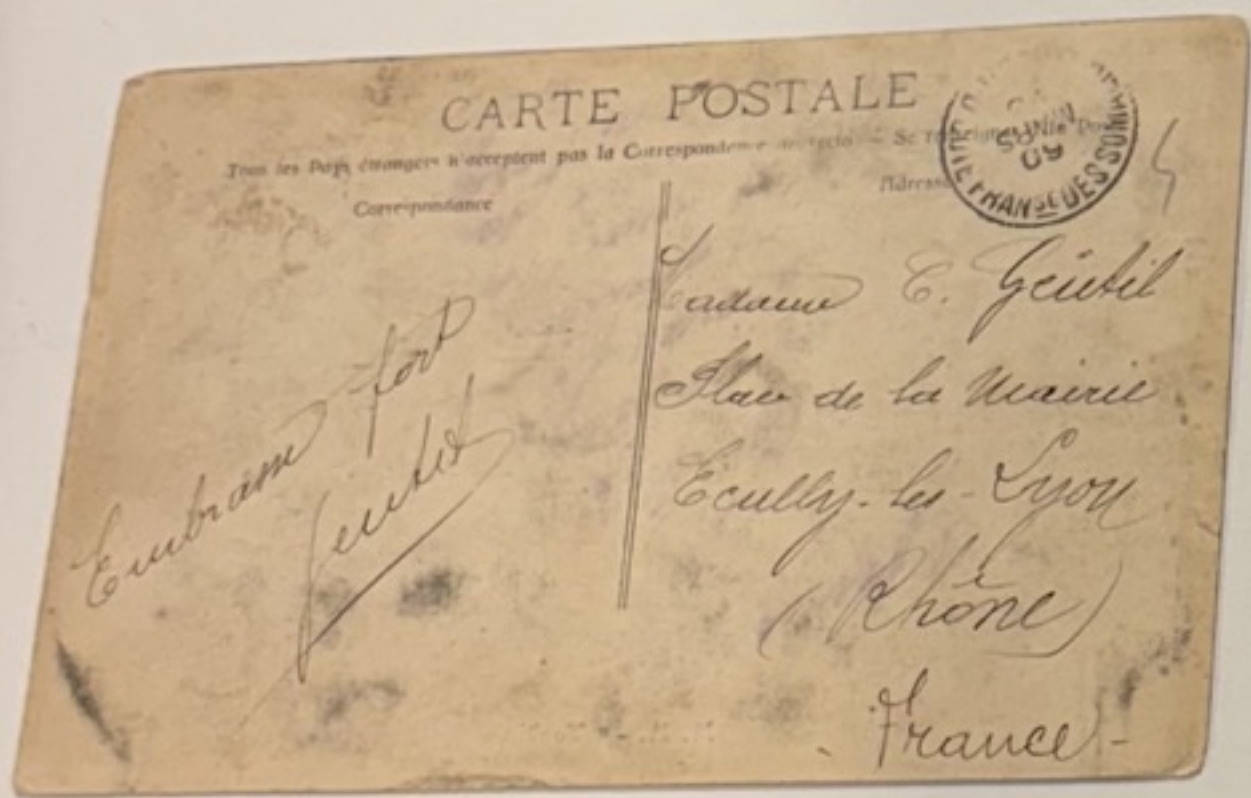 CARTE POSTALE
Tous les Pays étrangers n'acceptent pas la Correspondance au recto - Se renseigner à la Poste
Correspondance
Adresse
JUIN
09
FRANSE DES SOMALIS
Embrasse fort
Gentil
Madame C. Gentil
Place de la Mairie
Ecully-les-Lyon
(Rhône)
France-